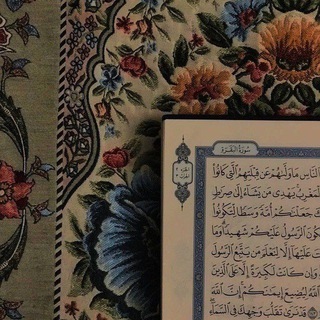 سُورَةُ البَقَرَةِ
النَّاسِ مَا وَلَّىٰهُمْ عَن قِبْلَتِهِمُ ٱلَّتِى كَانُوا۟
لْمَغْرِبُ يَهْدِى مَن يَشَآءُ إِلَىٰ صِرَٰطٍ
جَعَلْنَٰكُمْ أُمَّةً وَسَطًا لِّتَكُونُوا۟
كُونَ ٱلرَّسُولُ عَلَيْكُمْ شَهِيدًا وَمَا
تَ عَلَيْهَآ إِلَّا لِنَعْلَمَ مَن يَتَّبِعُ ٱلرَّسُولَ
وَإِن كَانَتْ لَكَبِيرَةً إِلَّا عَلَى ٱلَّذِينَ
ٱللَّهُ لِيُضِيعَ إِيمَٰنَكُمْ إِنَّ ٱللَّهَ
قَدْ نَرَىٰ تَقَلُّبَ وَجْهِكَ فِى ٱلسَّمَآءِ